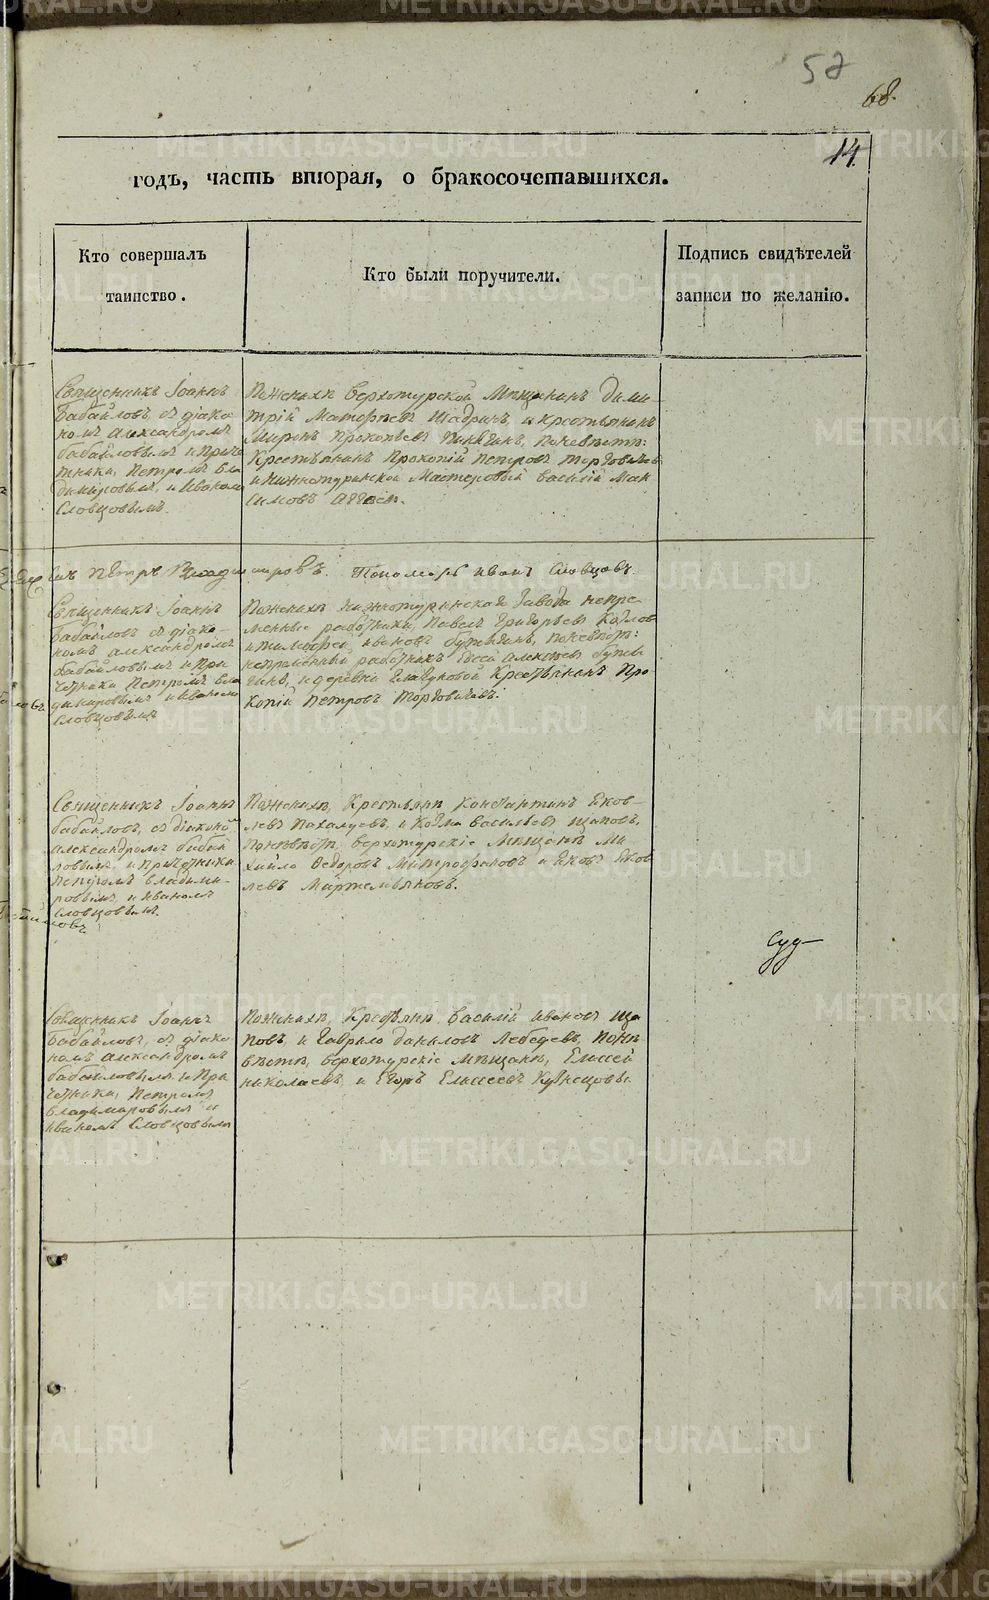 57
68.
14
годъ, часть вторая, о бракосочетавшихся.
Кто совершалъ
таинство.
Кто были поручители.
Подпись свидѣтелей
записи по желанію.
Священникъ Іоаннъ
Бабайловъ, съ діако-
номъ Александромъ
бабайловымъ и приче
тники, Петромъ Вла
димировымъ, и Иваномъ
Словцовымъ.
Поженихѣ Верхотурской Мѣщанинъ Дими-
трій Матѳѣевъ Шадринъ, и крестьянинъ
Миронъ Прокопьевъ, поневѣстѣ:
Крестьянинъ Прокопій Петровъ Торговичевъ
и Нижнотуринской Мастеровый Василій Мак
симовъ
Петръ Владимировъ. Пономарь Иванъ Словцовъ.
Священникъ Іоаннъ
Бабайловъ съ діако-
номъ Александромъ
бабайловымъ и при
четники Петромъ Вла
димировымъ и Иваномъ
Словцовымъ
Поженихѣ Нижнотуринскаго Завода непре-
менные работники, Павелъ Григорьевъ Козлов
и Тимофей Ивановъ, поневѣстѣ:
непременный работникъ Алексѣевъ
и деревни Крестьянинъ Про
копій Петровъ Торговичевъ.
Священникъ Іоаннъ
бабайловъ, съ діаконо
Александромъ бабай
ловымъ, и причетники
Петромъ Владими-
ровымъ, и Иваномъ
Словцовымъ.
Поженихѣ, Крестьяни Константинъ Яков-
левъ, и Козма Васильевъ Щаповъ,
поневѣстѣ, верхотурскіе Мѣщане Ми
хайло Ѳедоровъ Митрофановъ и Яковъ Яков
левъ Мартемьяновъ.
Суд
Священникъ Іоаннъ
Бабайловъ, съ діако
номъ Александромъ
бабайловымъ и При
четники, Петромъ
Владимировымъ и
Иваномъ Словцовымъ
Поженихѣ, Крестьяни Василій Ивановъ Ща
повъ, и Гаврило Даниловъ Лебедевъ, поне
вѣстѣ, верхотурскіе Мѣщане, Елисей
Николаевъ, и Егоръ Елисеевъ Кузнецовы
METRIKI.GASO-URAL.RU